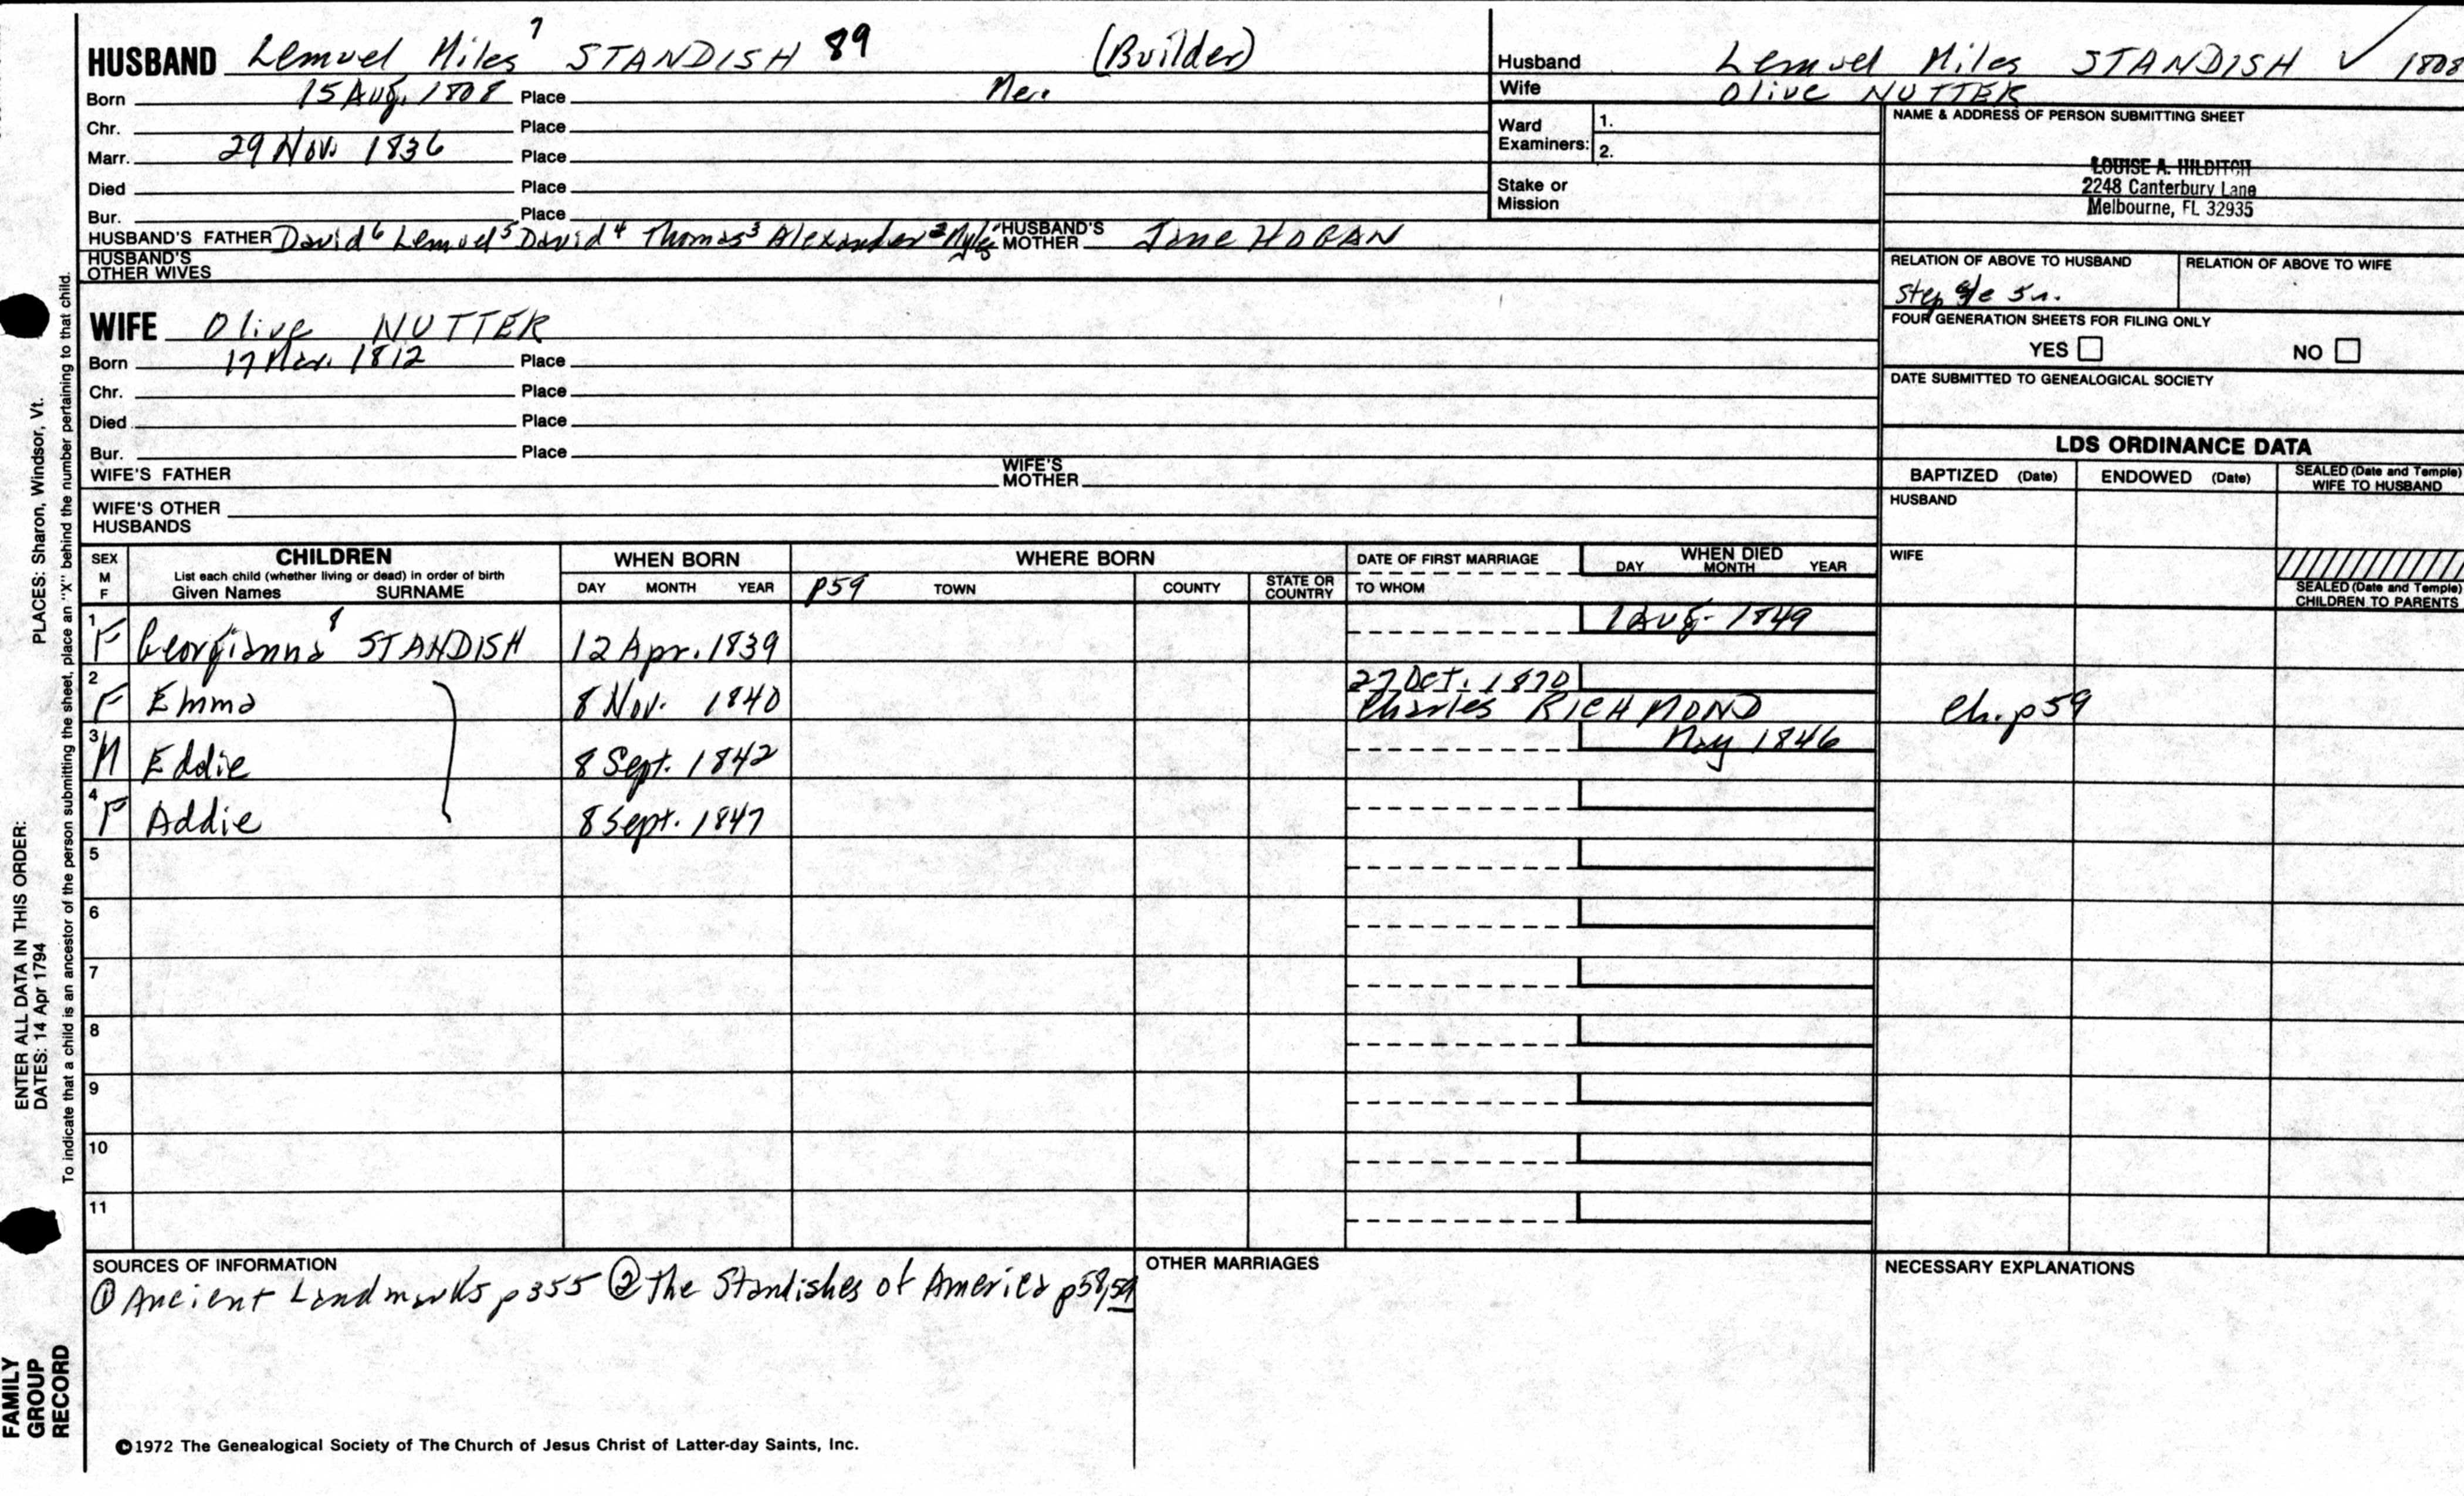 HUSBAND Lemuel Miles 7 STANDISH 89 (Builder)
Born 15 Aug. 1808 Place Me.
Chr. Place
Marr. 29 Nov. 1836 Place
Died Place
Bur. Place
HUSBAND'S FATHER David 6 Lemuel 5 David 4 Thomas 3 Alexander 2 Myles 1 HUSBAND'S MOTHER Jane HOGAN
HUSBAND'S OTHER WIVES
WIFE Olive NUTTER
Born 17 Mar. 1812 Place
Chr. Place
Died Place
Bur. Place
WIFE'S FATHER WIFE'S MOTHER
WIFE'S OTHER HUSBANDS
Husband Lemuel Miles STANDISH ✓ 1808
Wife Olive NUTTER
Ward Examiners: 1.
2.
Stake or Mission
NAME & ADDRESS OF PERSON SUBMITTING SHEET
LOUISE A. HILDITCH
2248 Canterbury Lane
Melbourne, FL 32935
RELATION OF ABOVE TO HUSBAND RELATION OF ABOVE TO WIFE
Step
FOUR GENERATION SHEETS FOR FILING ONLY
YES NO
DATE SUBMITTED TO GENEALOGICAL SOCIETY
LDS ORDINANCE DATA
BAPTIZED (Date) ENDOWED (Date) SEALED (Date and Temple) WIFE TO HUSBAND
HUSBAND
WIFE
SEALED (Date and Temple) CHILDREN TO PARENTS
SEX M F CHILDREN WHEN BORN WHERE BORN DATE OF FIRST MARRIAGE WHEN DIED
List each child (whether living or dead) in order of birth
Given Names SURNAME DAY MONTH YEAR p59 TOWN COUNTY STATE OR COUNTRY TO WHOM DAY MONTH YEAR
1 F Georgianna 8 STANDISH 12 Apr. 1839 1 Aug. 1849
2 F Emma 8 Nov. 1840 27 Oct. 1870 Charles RICHMOND Ch. p59
3 M Eddie 8 Sept. 1842 May 1846
4 F Addie 8 Sept. 1847
5
6
7
8
9
10
11
SOURCES OF INFORMATION
① Ancient Landmarks p355 ② The Standishes of America p58,59
OTHER MARRIAGES
NECESSARY EXPLANATIONS
©1972 The Genealogical Society of The Church of Jesus Christ of Latter-day Saints, Inc.
FAMILY GROUP RECORD
ENTER ALL DATA IN THIS ORDER:
DATES: 14 Apr 1794
PLACES: Sharon, Windsor, Vt.
To indicate that a child is an ancestor of the person submitting the sheet, place an "X" behind the number pertaining to that child.